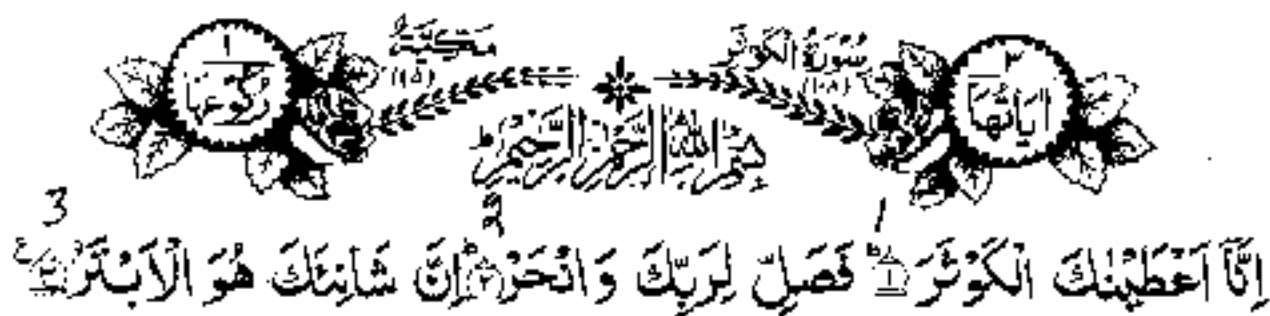 اٰيَاتُهَا ٣ سُوْرَةُ الْكَوْثَرِ (١٠٨) مَكِّيَّةٌ (١٥) رُكُوْعُهَا ١
بِسْمِ اللّٰهِ الرَّحْمٰنِ الرَّحِيْمِ
1 2 3
اِنَّاۤ اَعْطَيْنٰكَ الْكَوْثَرَ ؕ﴿١﴾ فَصَلِّ لِرَبِّكَ وَ انْحَرْ ؕ﴿٢﴾ اِنَّ شَانِئَكَ هُوَ الْاَبْتَرُ ﴿٣﴾ ع